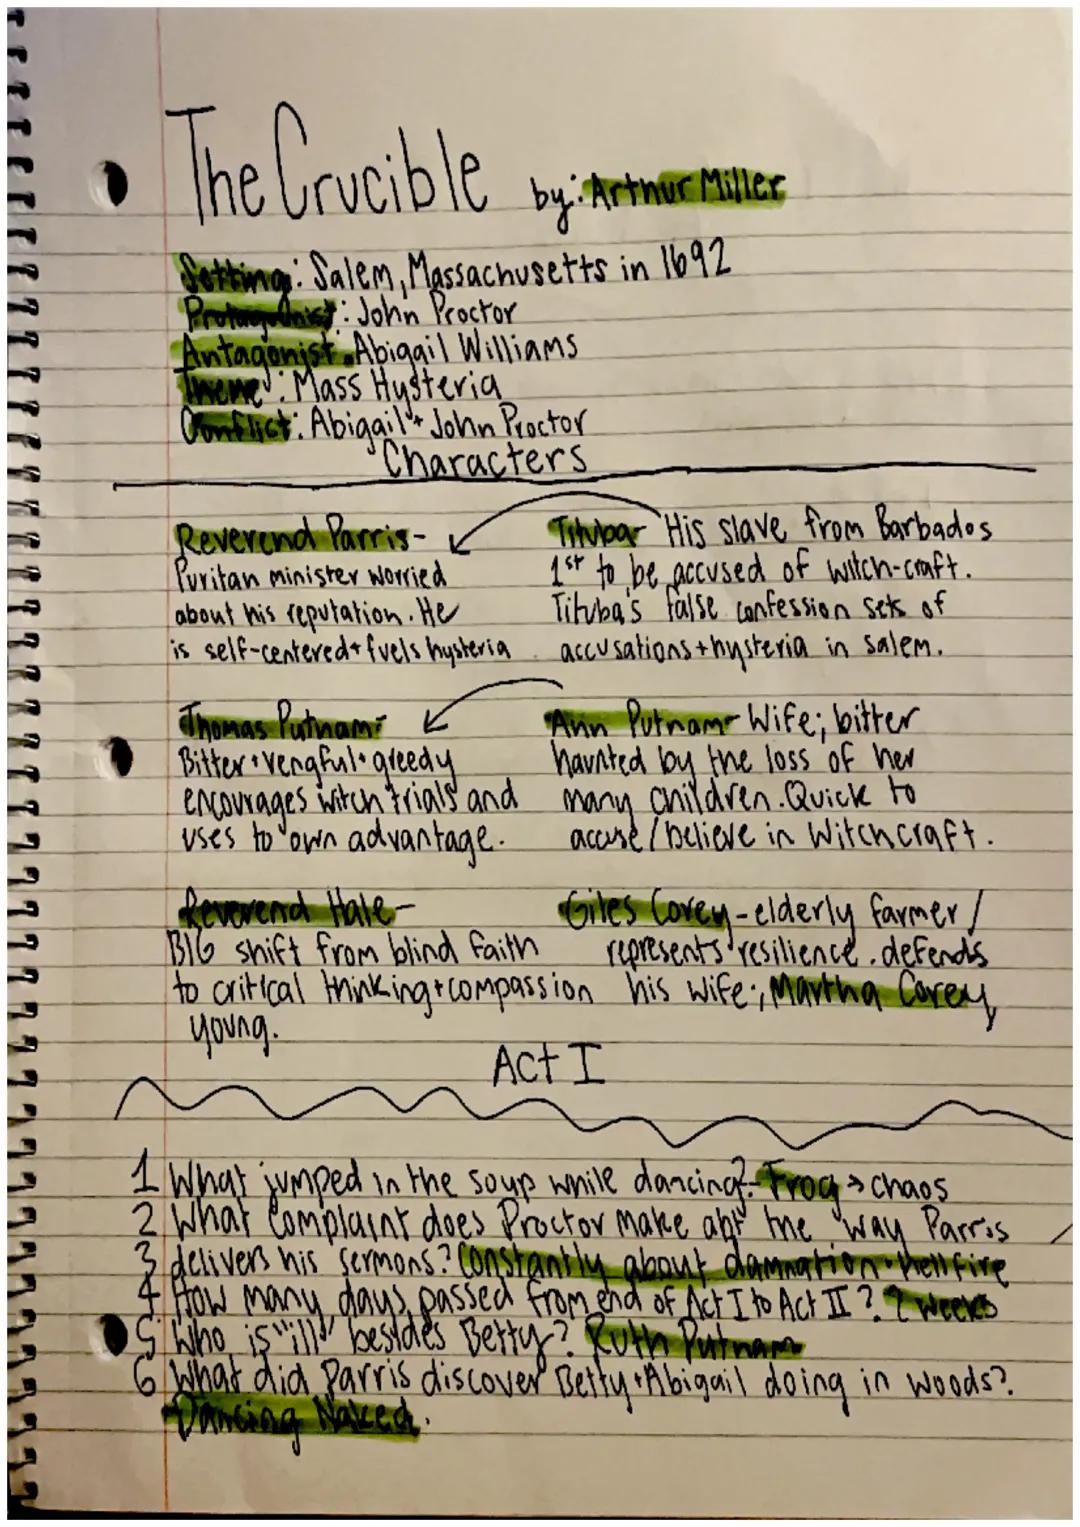 The Crucible by: Arthur Miller
Setting: Salem, Massachusetts in 1692
Protagonist: John Proctor
Antagonist: Abigail Williams
Theme: Mass Hysteria
Conflict: Abigail + John Proctor
Characters
Reverend Parris-
Puritan minister worried
about his reputation. He
is self-centered + fuels hysteria
Tituba- His slave from Barbados
1st to be accused of witch-craft.
Tituba's false confession sets of
accusations + hysteria in Salem.
Thomas Putnam-
Bitter + vengful + greedy
encourages witch trials and
uses to own advantage.
Ann Putnam- Wife; bitter
haunted by the loss of her
many children. Quick to
accuse/believe in Witchcraft.
Reverend Hale-
BIG shift from blind faith
to critical thinking + compassion
young.
Giles Corey-elderly farmer/
represents resilience. defends
his wife; Martha Corey
Act I
1 What jumped in the soup while dancing?- Frog → chaos
2 What complaint does Proctor make abt the way Parris
3 delivers his sermons? Constantly about damnation + Hellfire
4 How many days passed from end of Act I to Act II? 2 weeks
5 Who is "ill" besides Betty? Ruth Putnam
6 What did Parris discover Betty + Abigail doing in woods?
Dancing Naked.